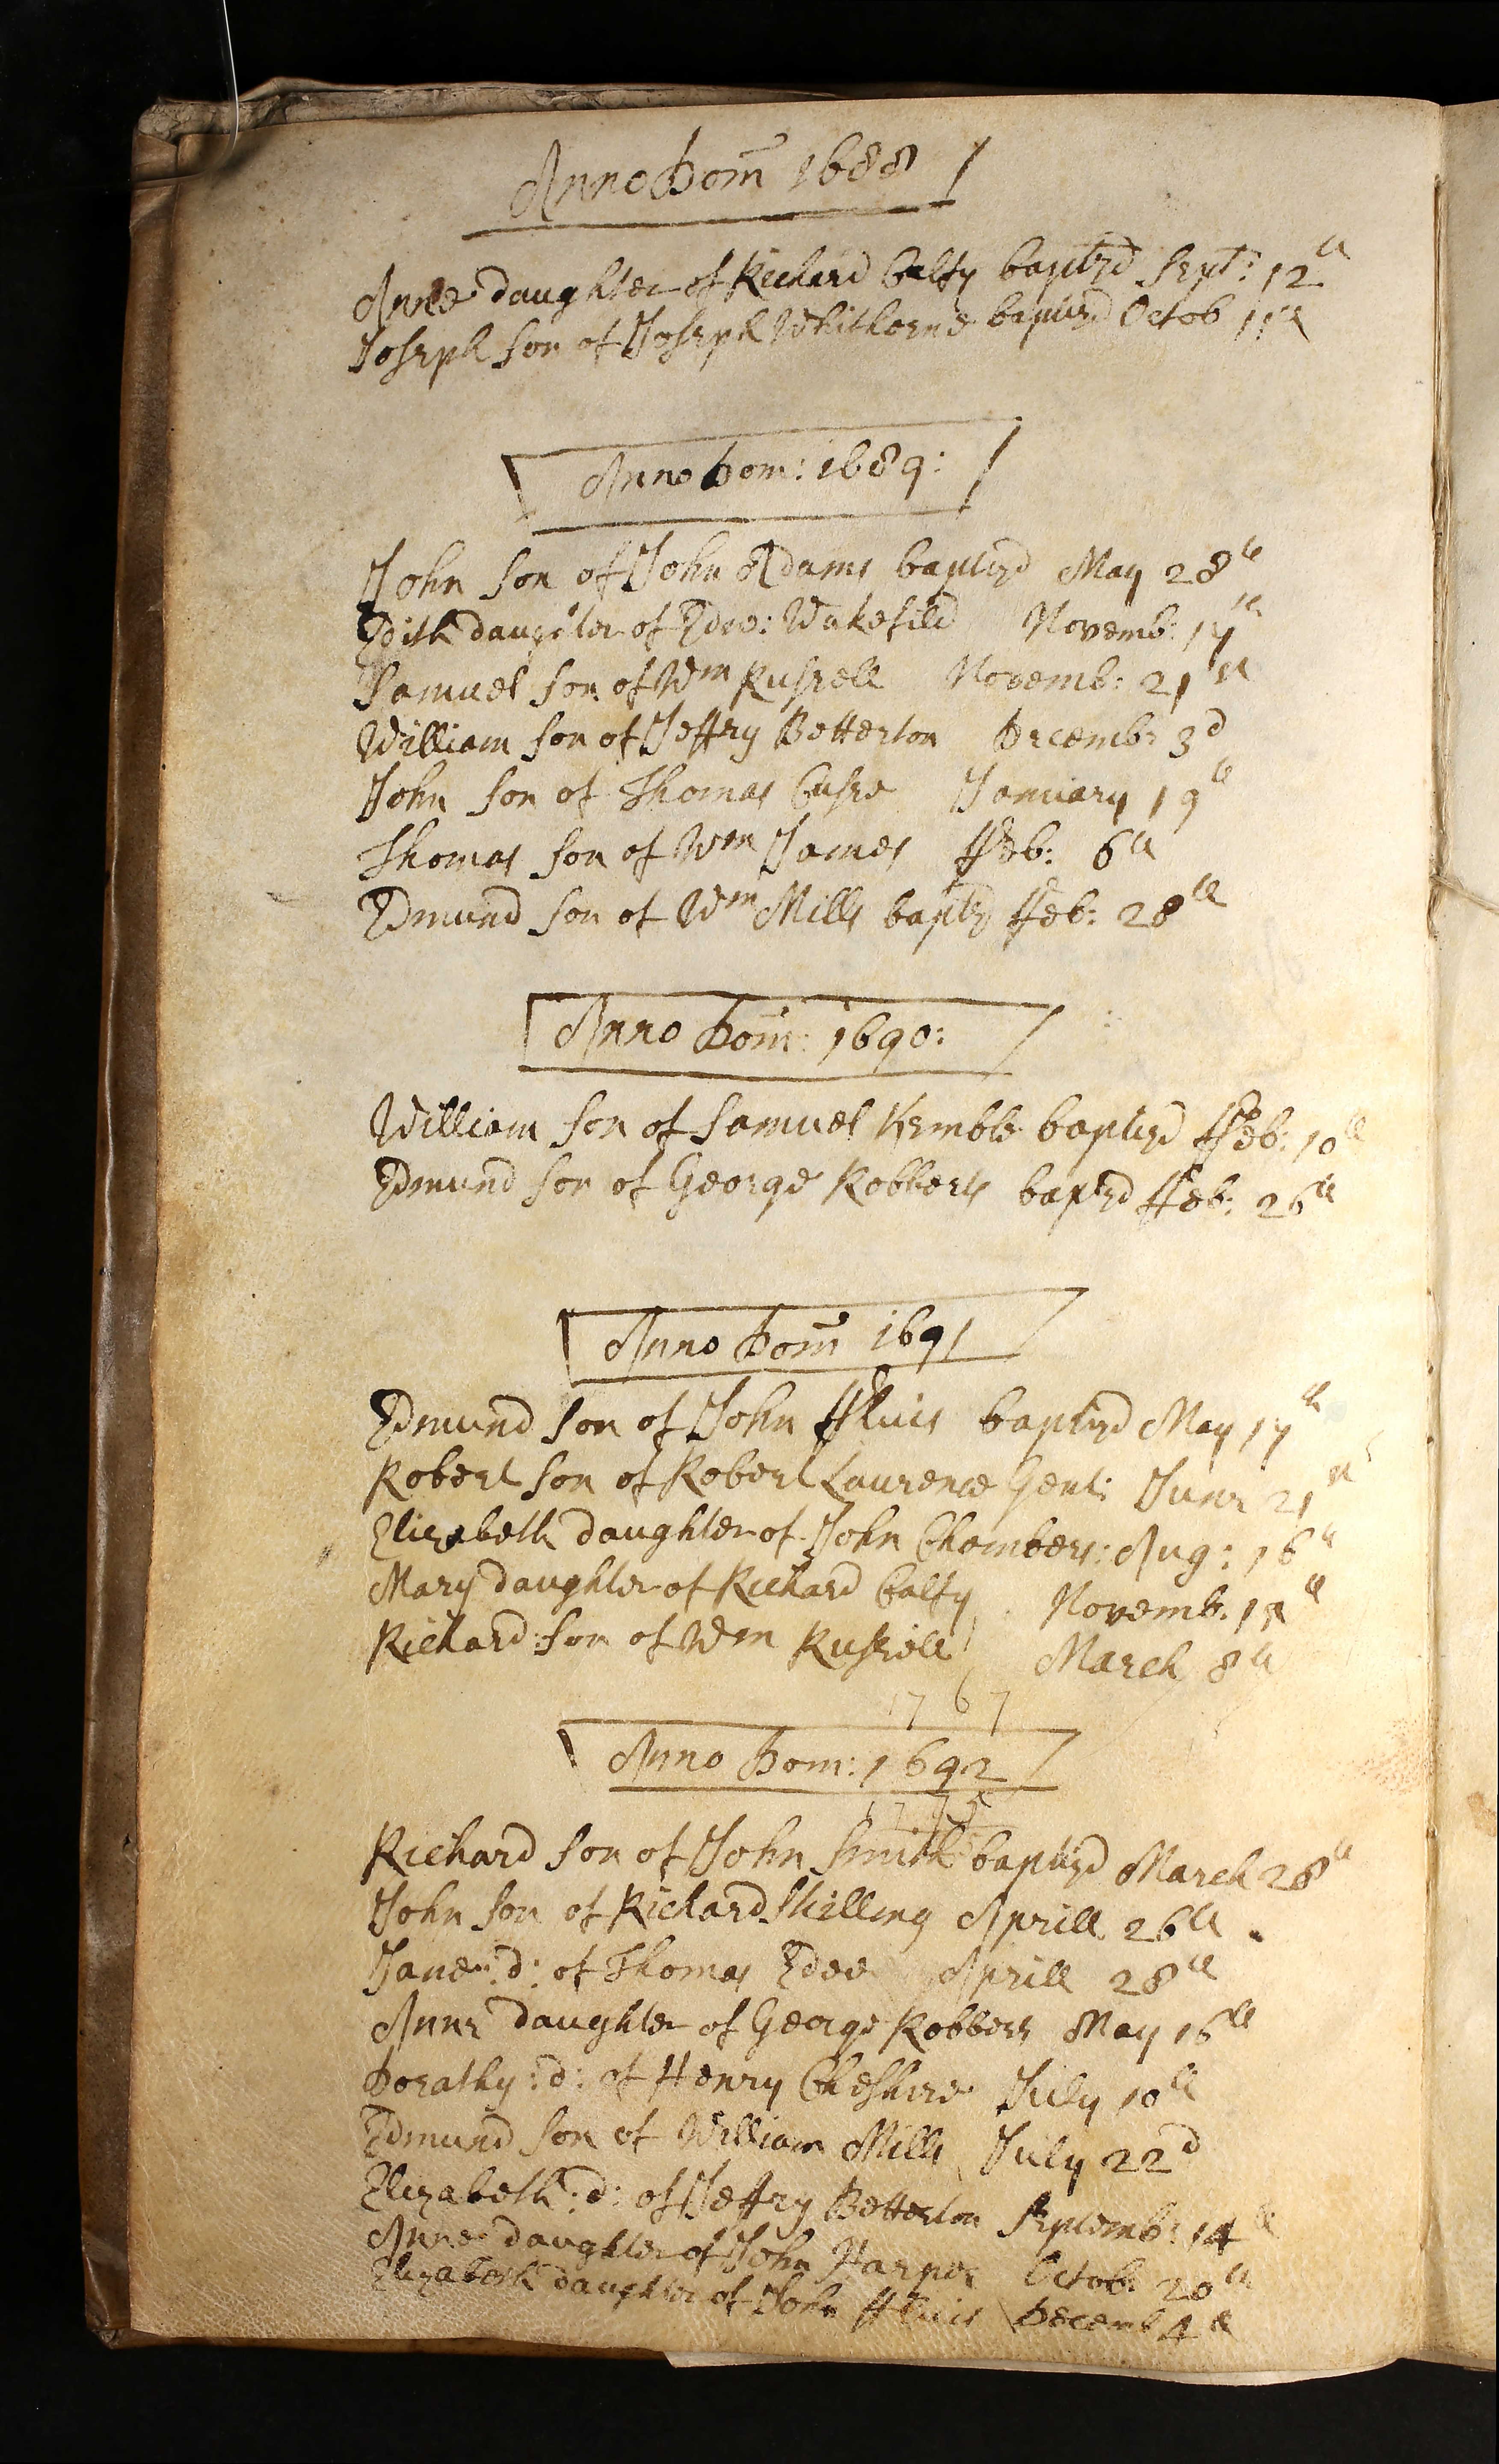 Anno Dom 1688
Anne daughter of Richard Calfy baptizd Sept: 12th
Joseph son of Joseph Whithorne baptizd Octob 11th
Anno Dom: 1689:
John son of John Adams baptizd May 28th
Edith daughter of Edw: Wakefild Novemb: 17th
Samuel son of Wm Russell Novemb: 21st
William son of Jeffry Betterton Decemb: 3d
John son of Thomas Casse January 19th
Thomas son of Wm James ffeb: 6th
Edmund son of Wm Mills baptz ffeb: 28th
Anno Dom: 1690:
William son of Samuel Kemble baptizd ffeb: 10th
Edmund son of George Robberts baptzd ffeb: 26th
Anno Dom 1691
Edmund son of John ffluis baptizd May 17th
Robert son of Robert Laurence Gent: June 21st
Elizabeth daughter of John Chambers: Aug: 16th
Mary daughter of Richard Calfy Novemb:
Richard son of Wm Russell March 8th
1767
Anno Dom: 1692
Richard son of John Smith baptizd March 28th
John son of Richard Shilling Aprill 26th
Jane :d: of Thomas Edee Aprill 28th
Anne daughter of George Robbers May 16th
Dorathy :d: of Henry Cheshire July 10th
Edmund son of William Mills July 22d
Elizabeth :d: of Jeffry Betterton Septemb: 14th
Anne daughter of John Harper Octob: 20th
Elizabeth daughter of John ffluis Decemb 4th